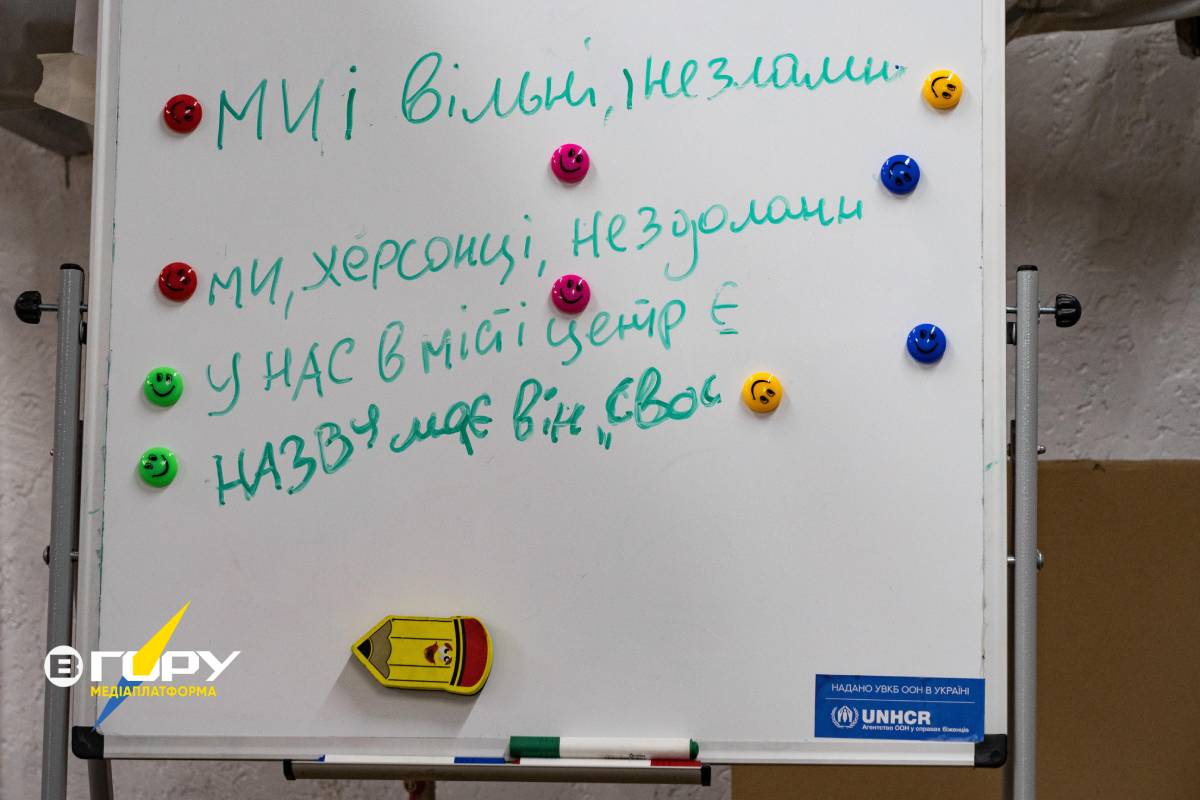 МИ і вільні, і незламн
ми, херсонці, нездоланн
У НАС в місті центр Є
НАЗВУ має він „своє
вгору
МЕДІАПЛАТФОРМА
НАДАНО УВКБ ООН В УКРАЇНІ
UNHCR
Агентство ООН у справах біженців